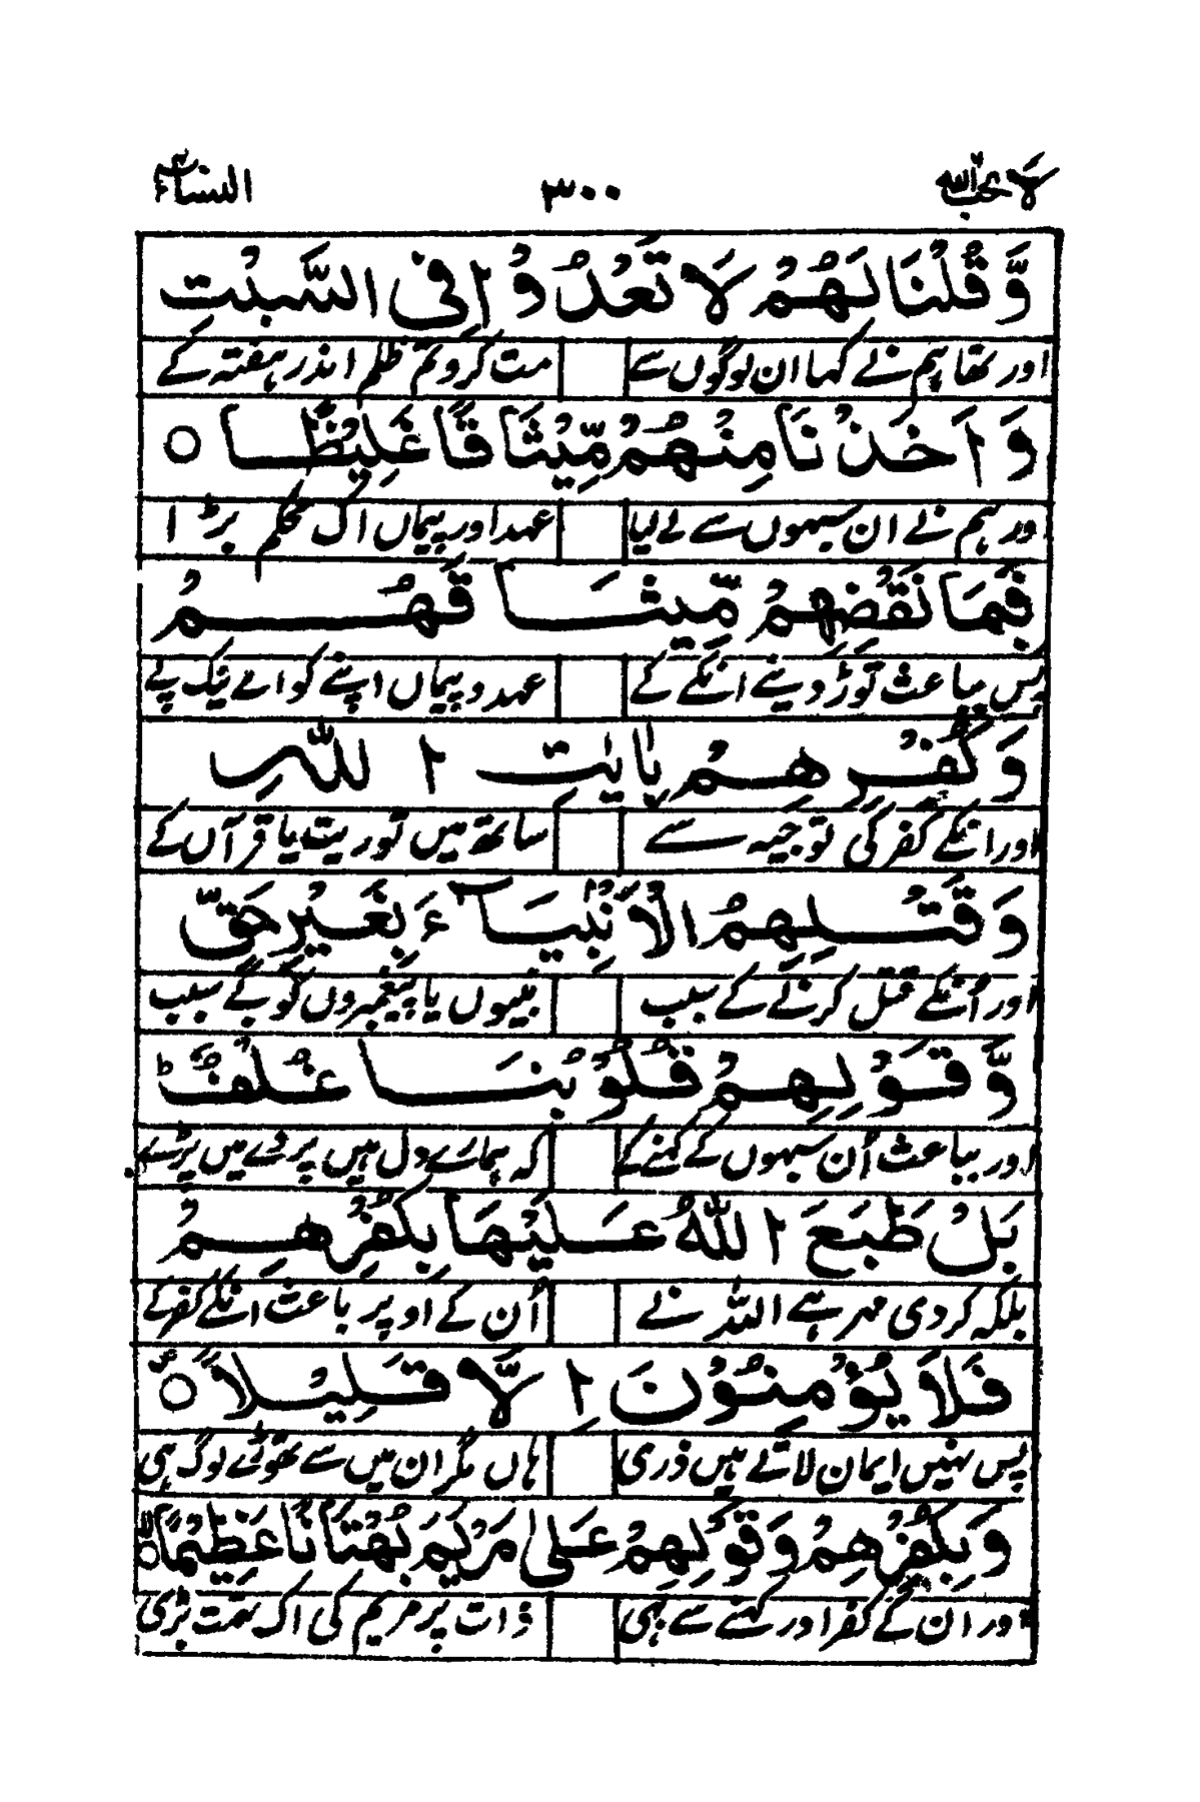 لا یحب اللہ ۳۰۰ النساء
وَّ قُلْنَا لَهُمْ لَا تَعْدُوْا فِی السَّبْتِ
اور تھا ہم نے کہا ان لوگوں سے مت کرو تم ظلم اندر ہفتہ کے
وَ اَخَذْنَا مِنْهُمْ مِّیْثَاقًا غَلِیْظًا ○
اور ہم نے ان سبھوں سے لے لیا عہد اور پیماں اک محکم بڑا
فَبِمَا نَقْضِهِمْ مِّیْثَاقَهُمْ
پس بباعث توڑ دینے انکے کے عہد و پیماں اپنے کو
وَ كُفْرِهِمْ بِاٰیٰتِ اللّٰهِ
اور انکے کفر کی توجیہ سے ساتھ میں توریت یا قرآں کے
وَ قَتْلِهِمُ الْاَنْۢبِیَآءَ بِغَیْرِ حَقٍّ
اور اُنکے قتل کرنے کے سبب نبیوں یا پیغمبروں کو بے سبب
وَّ قَوْلِهِمْ قُلُوْبُنَا غُلْفٌ ؕ
اور بباعث اُن سبھوں کے کہنے کے کہ ہمارے دل ہیں پردے میں پڑے
بَلْ طَبَعَ اللّٰهُ عَلَیْهَا بِكُفْرِهِمْ
بلکہ کردی مہر ہے اللہ نے اُن کے اوپر باعث انکے کفر کے
فَلَا یُؤْمِنُوْنَ اِلَّا قَلِیْلًا ○
پس نہیں ایمان لاتے ہیں ذری ہاں مگر ان میں سے تھوڑے لوگ ہی
وَ بِكُفْرِهِمْ وَ قَوْلِهِمْ عَلٰی مَرْیَمَ بُهْتَانًا عَظِیْمًا ○
اور ان کے کفر اور کہنے سے ہی ذات پر مریم کی اک تہمت بڑی